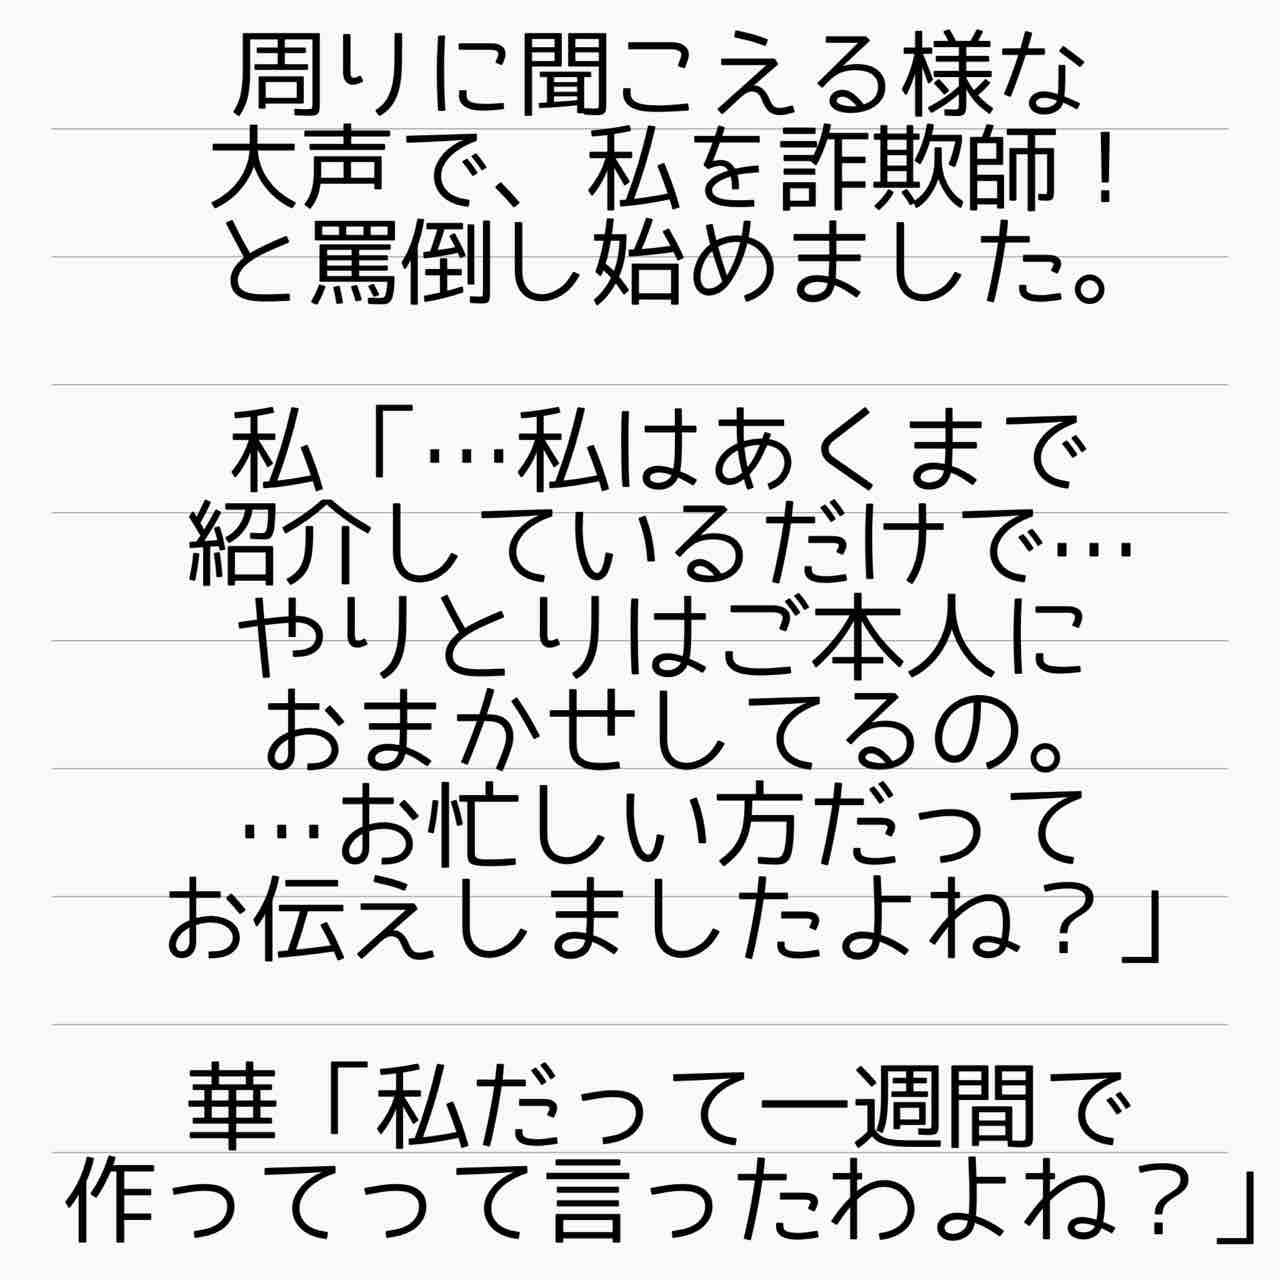 周りに聞こえる様な
大声で、私を詐欺師！
と罵倒し始めました。
私「…私はあくまで
紹介しているだけで…
やりとりはご本人に
おまかせしてるの。
…お忙しい方だって
お伝えしましたよね？」
華「私だって一週間で
作ってって言ったわよね？」